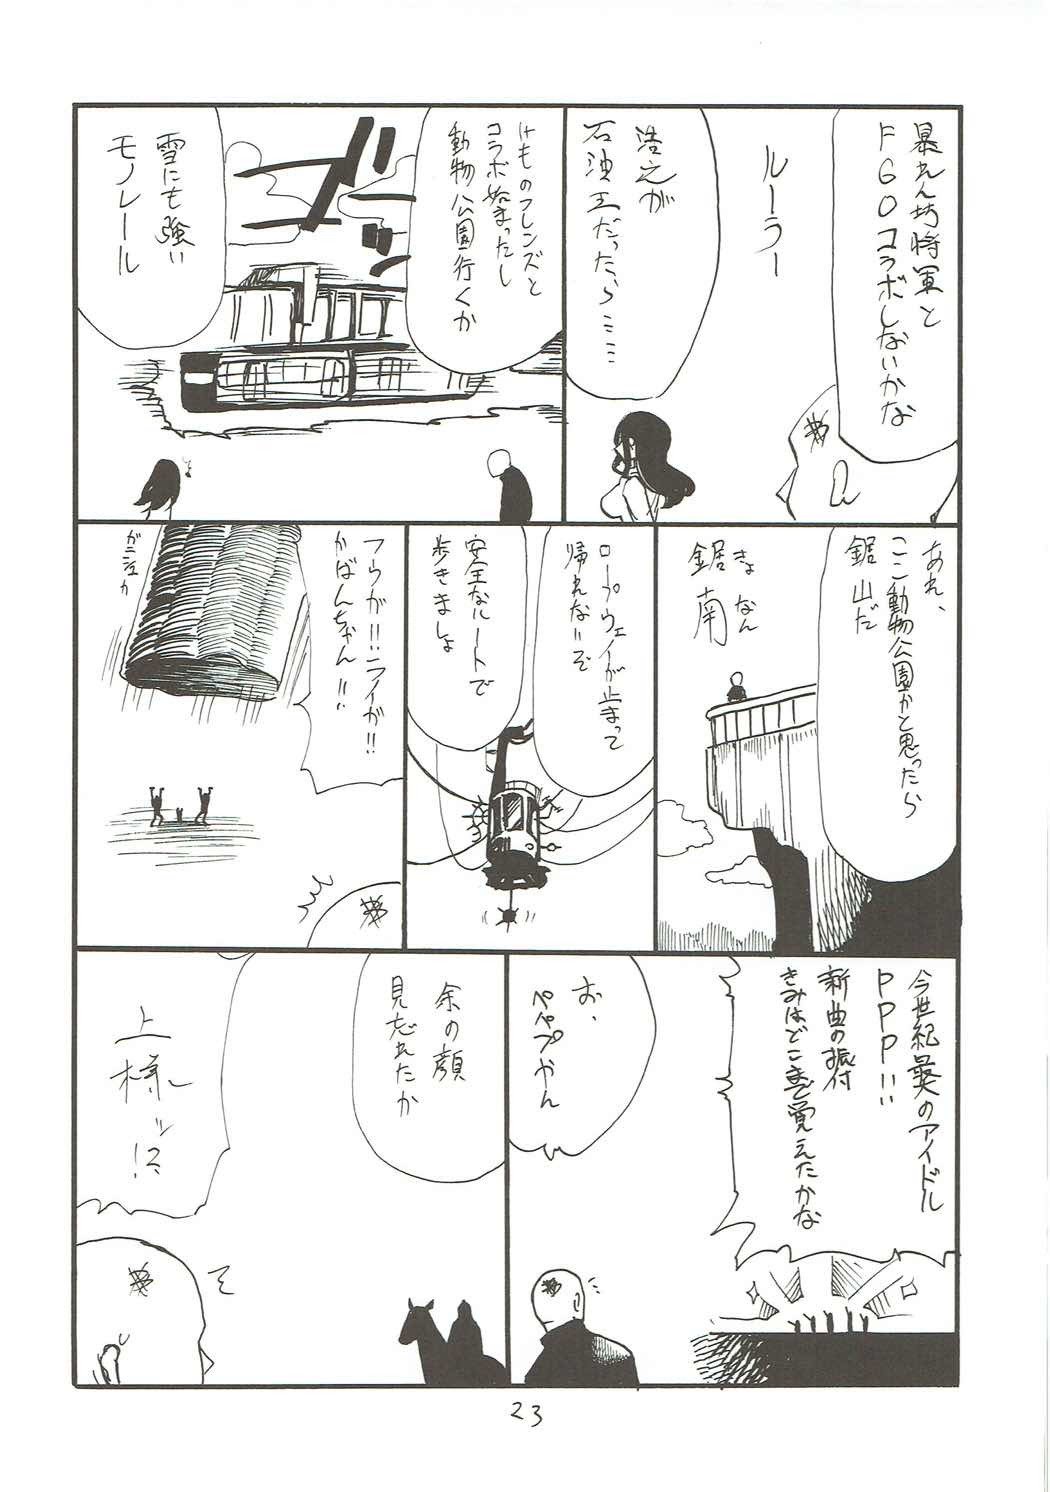 暴れん坊将軍と
FGOコラボしないかな
ルーラー
浩之が
石油王だったら……
けものフレンズと
コラボ始まったし
動物公園行くか
ドドドン
雪にも強い
モノレール
あれ、
ここ動物公園かと思ったら
鋸山だ
きょなん
鋸南
ロープウェイが止まって
帰れないぞ
安全なルートで
歩きましょ
フウが!!ライが!!
かばんちゃん!!
今世紀最大のアイドル
PPP!!
新曲の振付
きみはどこまで覚えたかな
お、
ペパプやん
余の顔
見忘れたか
上様ッ!?
23